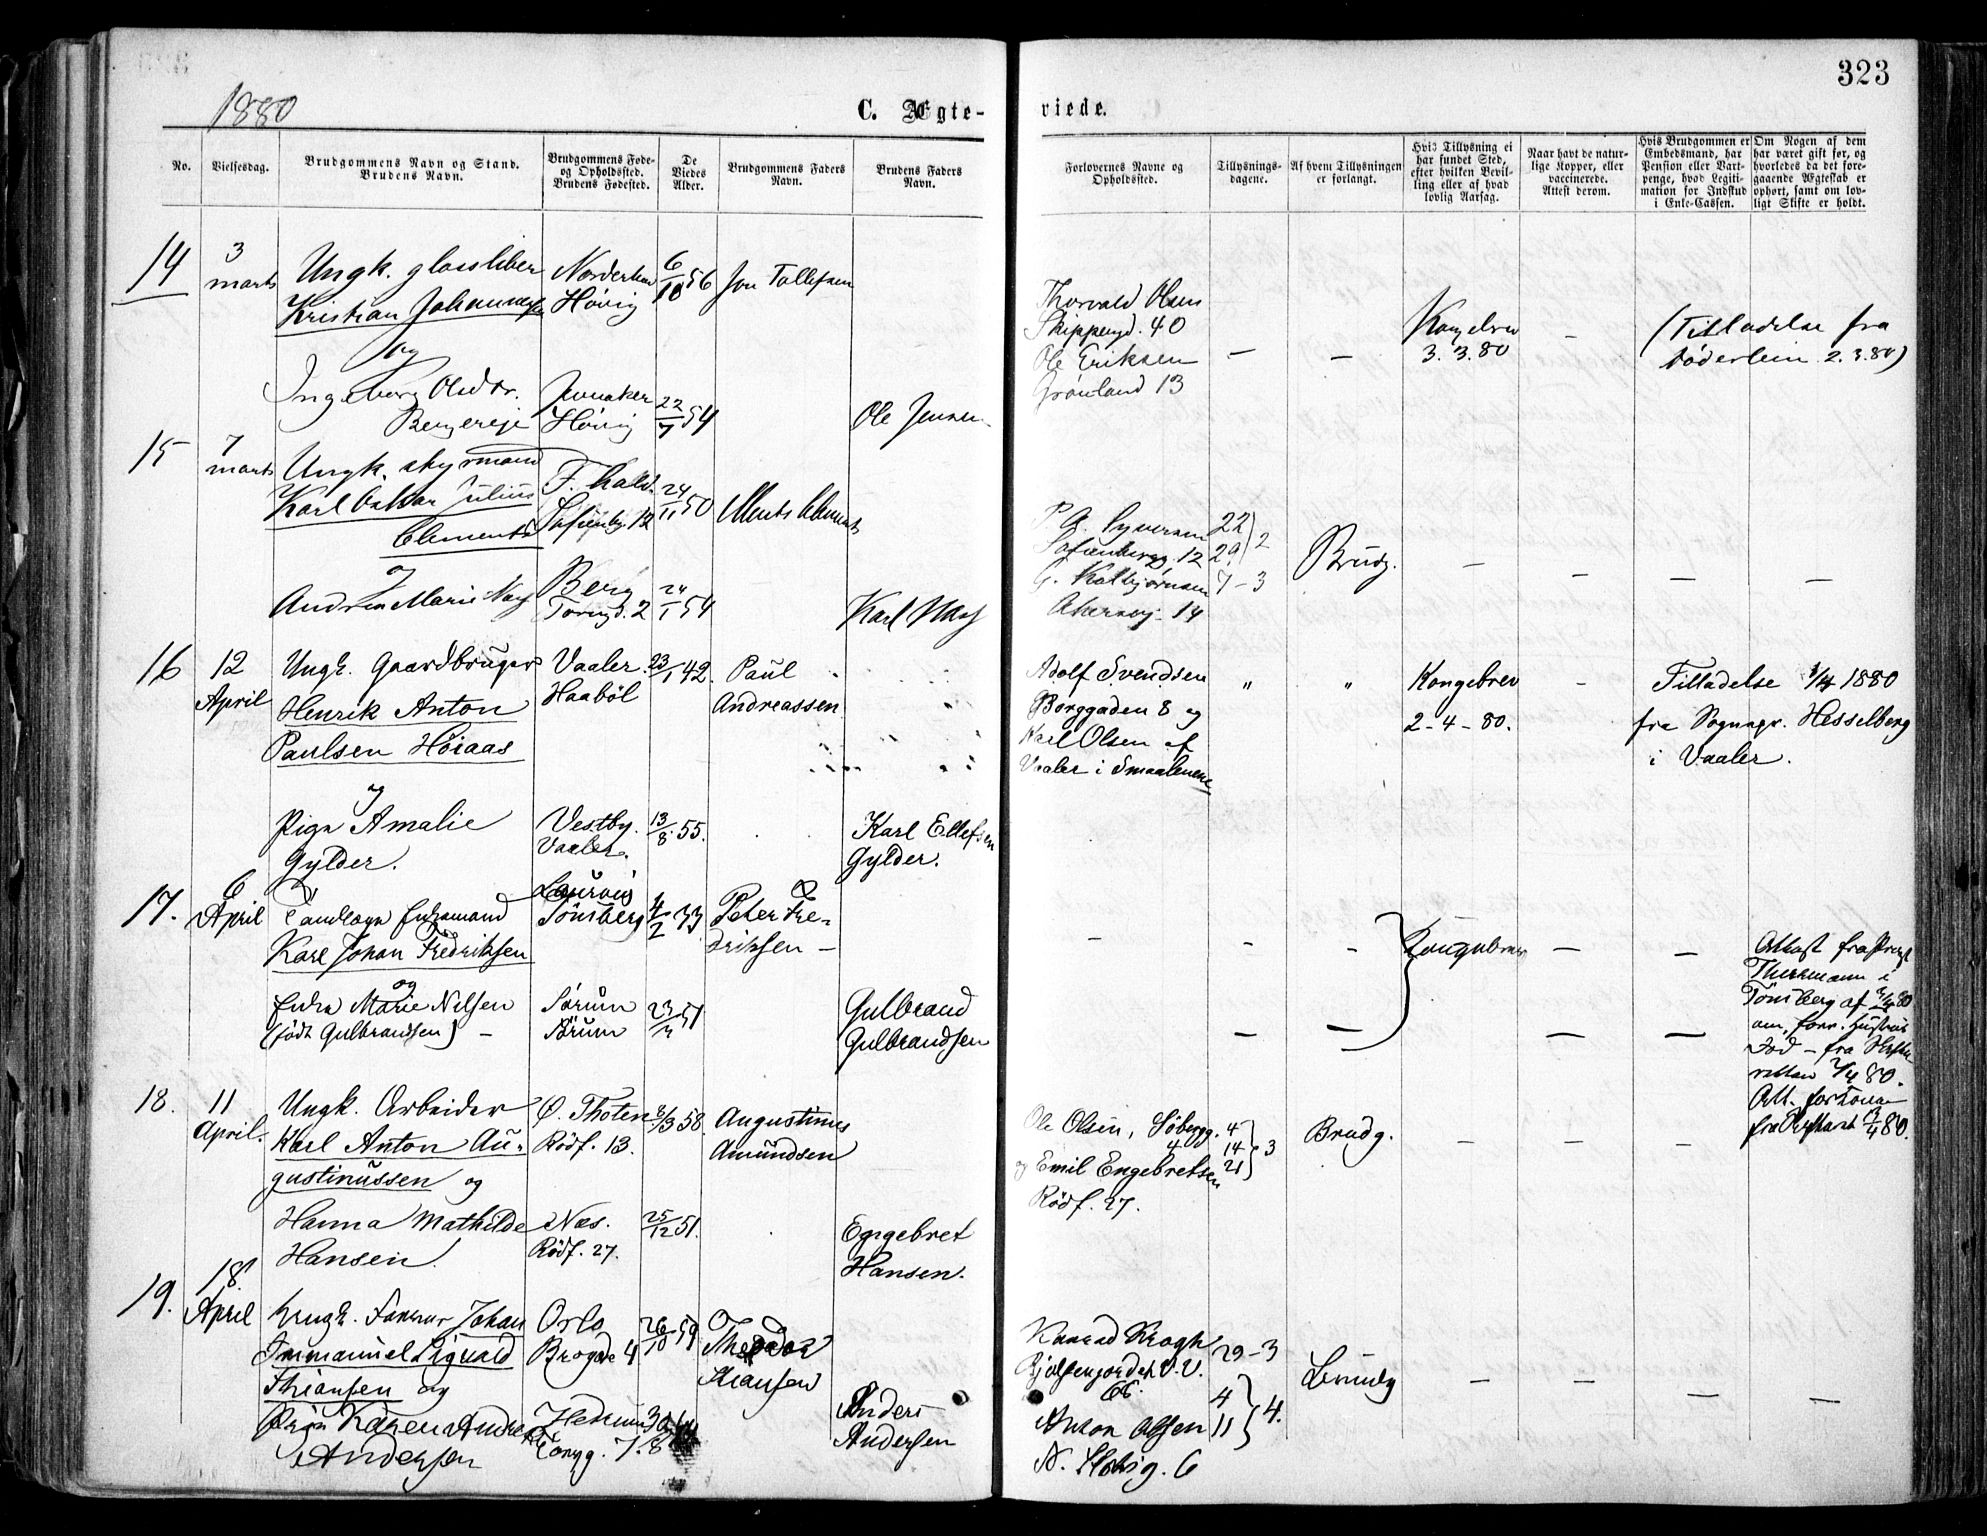 323
1880
C. Ægte-
viede.
No.
Vielsesdag.
Brudgommens Navn og Stand.
Brudens Navn.
Brudgommens Føde-
og Opholdssted.
Brudens Fødested.
De
Viedes
Alder.
Brudgommens Faders
Navn.
Brudens Faders
Navn.
Forlovernes Navne og
Opholdssted.
Tillysnings-
dagene.
Af hvem Tillysningen
er forlangt.
Hvis Tillysning ei
har fundet Sted,
efter hvilken Bevil-
ling eller af hvad
lovlig Aarsag.
Naar havt de natur-
lige Kopper, eller
vaccinerede.
Attest derom.
Hvis Brudgommen er
Embedsmand, har
Pension eller Vart-
penge, hvad Legiti-
mation for Indskud
i Enke-Cassen.
Om Nogen af dem
har været gift før, og
hvorledes da det fore-
gaaende Ægteskab er
ophørt, samt om lov-
ligt Skifte er holdt.
14
3
marts
Ungk. glassliber
Kristian Johannes
og
Ingeborg Olsdtr.
Høvig
Jevnaker
Høvig
6/10 56
22/7 54
Jon Tollefsen
Ole Jensen
Thorvald Olsen
Skippergd. 40
Ole Eriksen
Grönland 13
–
–
Kongebrev
3.3.80
–
(Tilladelse fra
Döderlein 2.3.80)
15
7
marts
Ungk. styrmand
Karl Oskar Julius
Clements
og
Marie
F. hald.
12
24/11 50
Ments Clements
Berg
Torvgd. 2
24/1 54
Karl
P. A. Syversen
Sofienbergg. 12
G. Kolbjørnsen
Akersvg. 14
22
29 } 2
7–3
Brudg.
–
–
–
–
16
12
April
Ungk. Gaardbruger
Henrik Anton
Paulsen Höiaas
og
Pige Amalie
Gylder.
Vaaler
Haaböl
Vestby.
Vaaler.
23/1 42.
13/8 55.
Paul
Andreassen
Karl Ellefsen
Gylder.
Adolf Svendsen
Borggaden 8 og
Karl Olsen af
Vaaler i Smaalenene
"
"
Kongebrev
2–4–80.
–
Tilladelse 1/4 1880
fra Sognepr. Hesselberg
i Vaaler.
17.
6
April
Enkemand
Karl Johan Fredriksen
og
Enke Marie Nilsen
(födt Gulbrandsen) –
Laurvig
Tönsberg
Sørum
Sørum
4/2 33
Peter Fre-
driksen –
Gulbrand
Gulbrandsen
–
–
–
Kongebrev
–
–
–
–
–
–
Attest fra
i
Tönsberg af 80
om forr. Hustrus
Död – fra
2/4 80.
Att.
fra 13/4 80.
18.
11
April.
Ungk. Arbeider
Karl Anton Au-
gustinussen og
Hanna Mathilde
Hansen.
Ø. Thoten
Rödf. 13.
Næs.
Rödf. 27.
8/3 58.
25/12 51.
Augustinus
Amundsen
Engebret
Hansen.
Ole Olsen, Söbergg.
4
og Emil Engebretsen
Rödf. 27.
4
14 } 3
21
Brudg.
–
–
–
–
19.
18
April
Ungk. Johan
Immanuel Sigvald
og
Pige Karen
Andersen
Oslo
Brogde 4
Torvg. 7.
26/10 59
30/8
Theodor
Anders
Andersen
Konrad Krogh
Anton Olsen
6
29–3
4
11 } 4.
Brudg
–
–
–
–